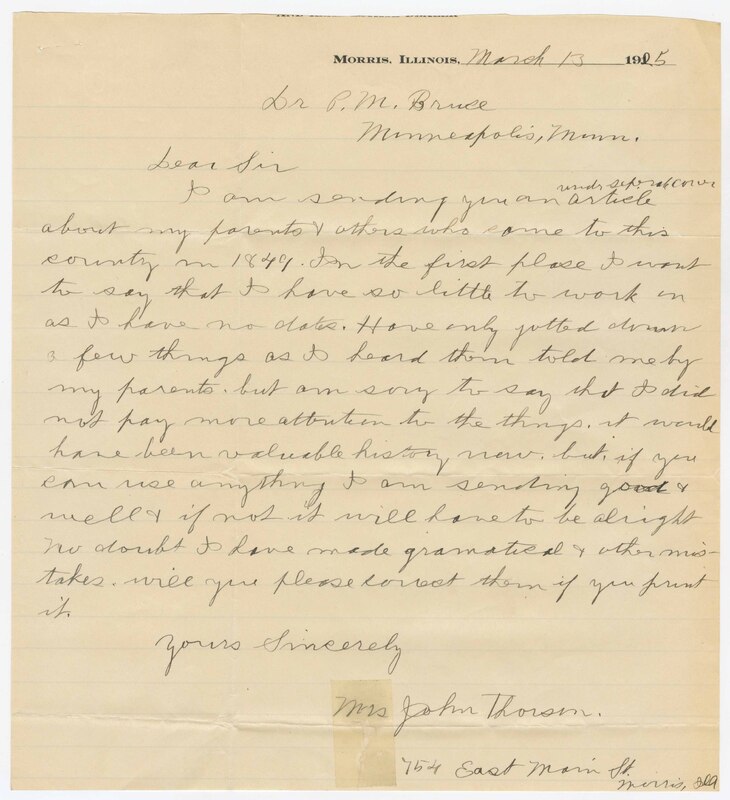 Morris, Illinois, March 13 1925
Dr P. M. Bruse
Minneapolis, Minn.
Dear Sir
undr seperat cover
I am sending you an article
about my parents & others who came to this
county in 1849. In the first plase I want
to say that I have so little to work on
as I have no dates. Have only jotted down
a few things as I heard them told me by
my parents. but am sory to say that I did
not pay more attention to the things. it would
have been valuable history now. but if you
can use anything I am sending good &
well & if not it will have to be alright
No doubt I have made gramatical & other mis-
takes. will you please correct them if you print
it.
Yours Sincerely
Mrs John Thorson.
754 East Main St.
Morris, Ill